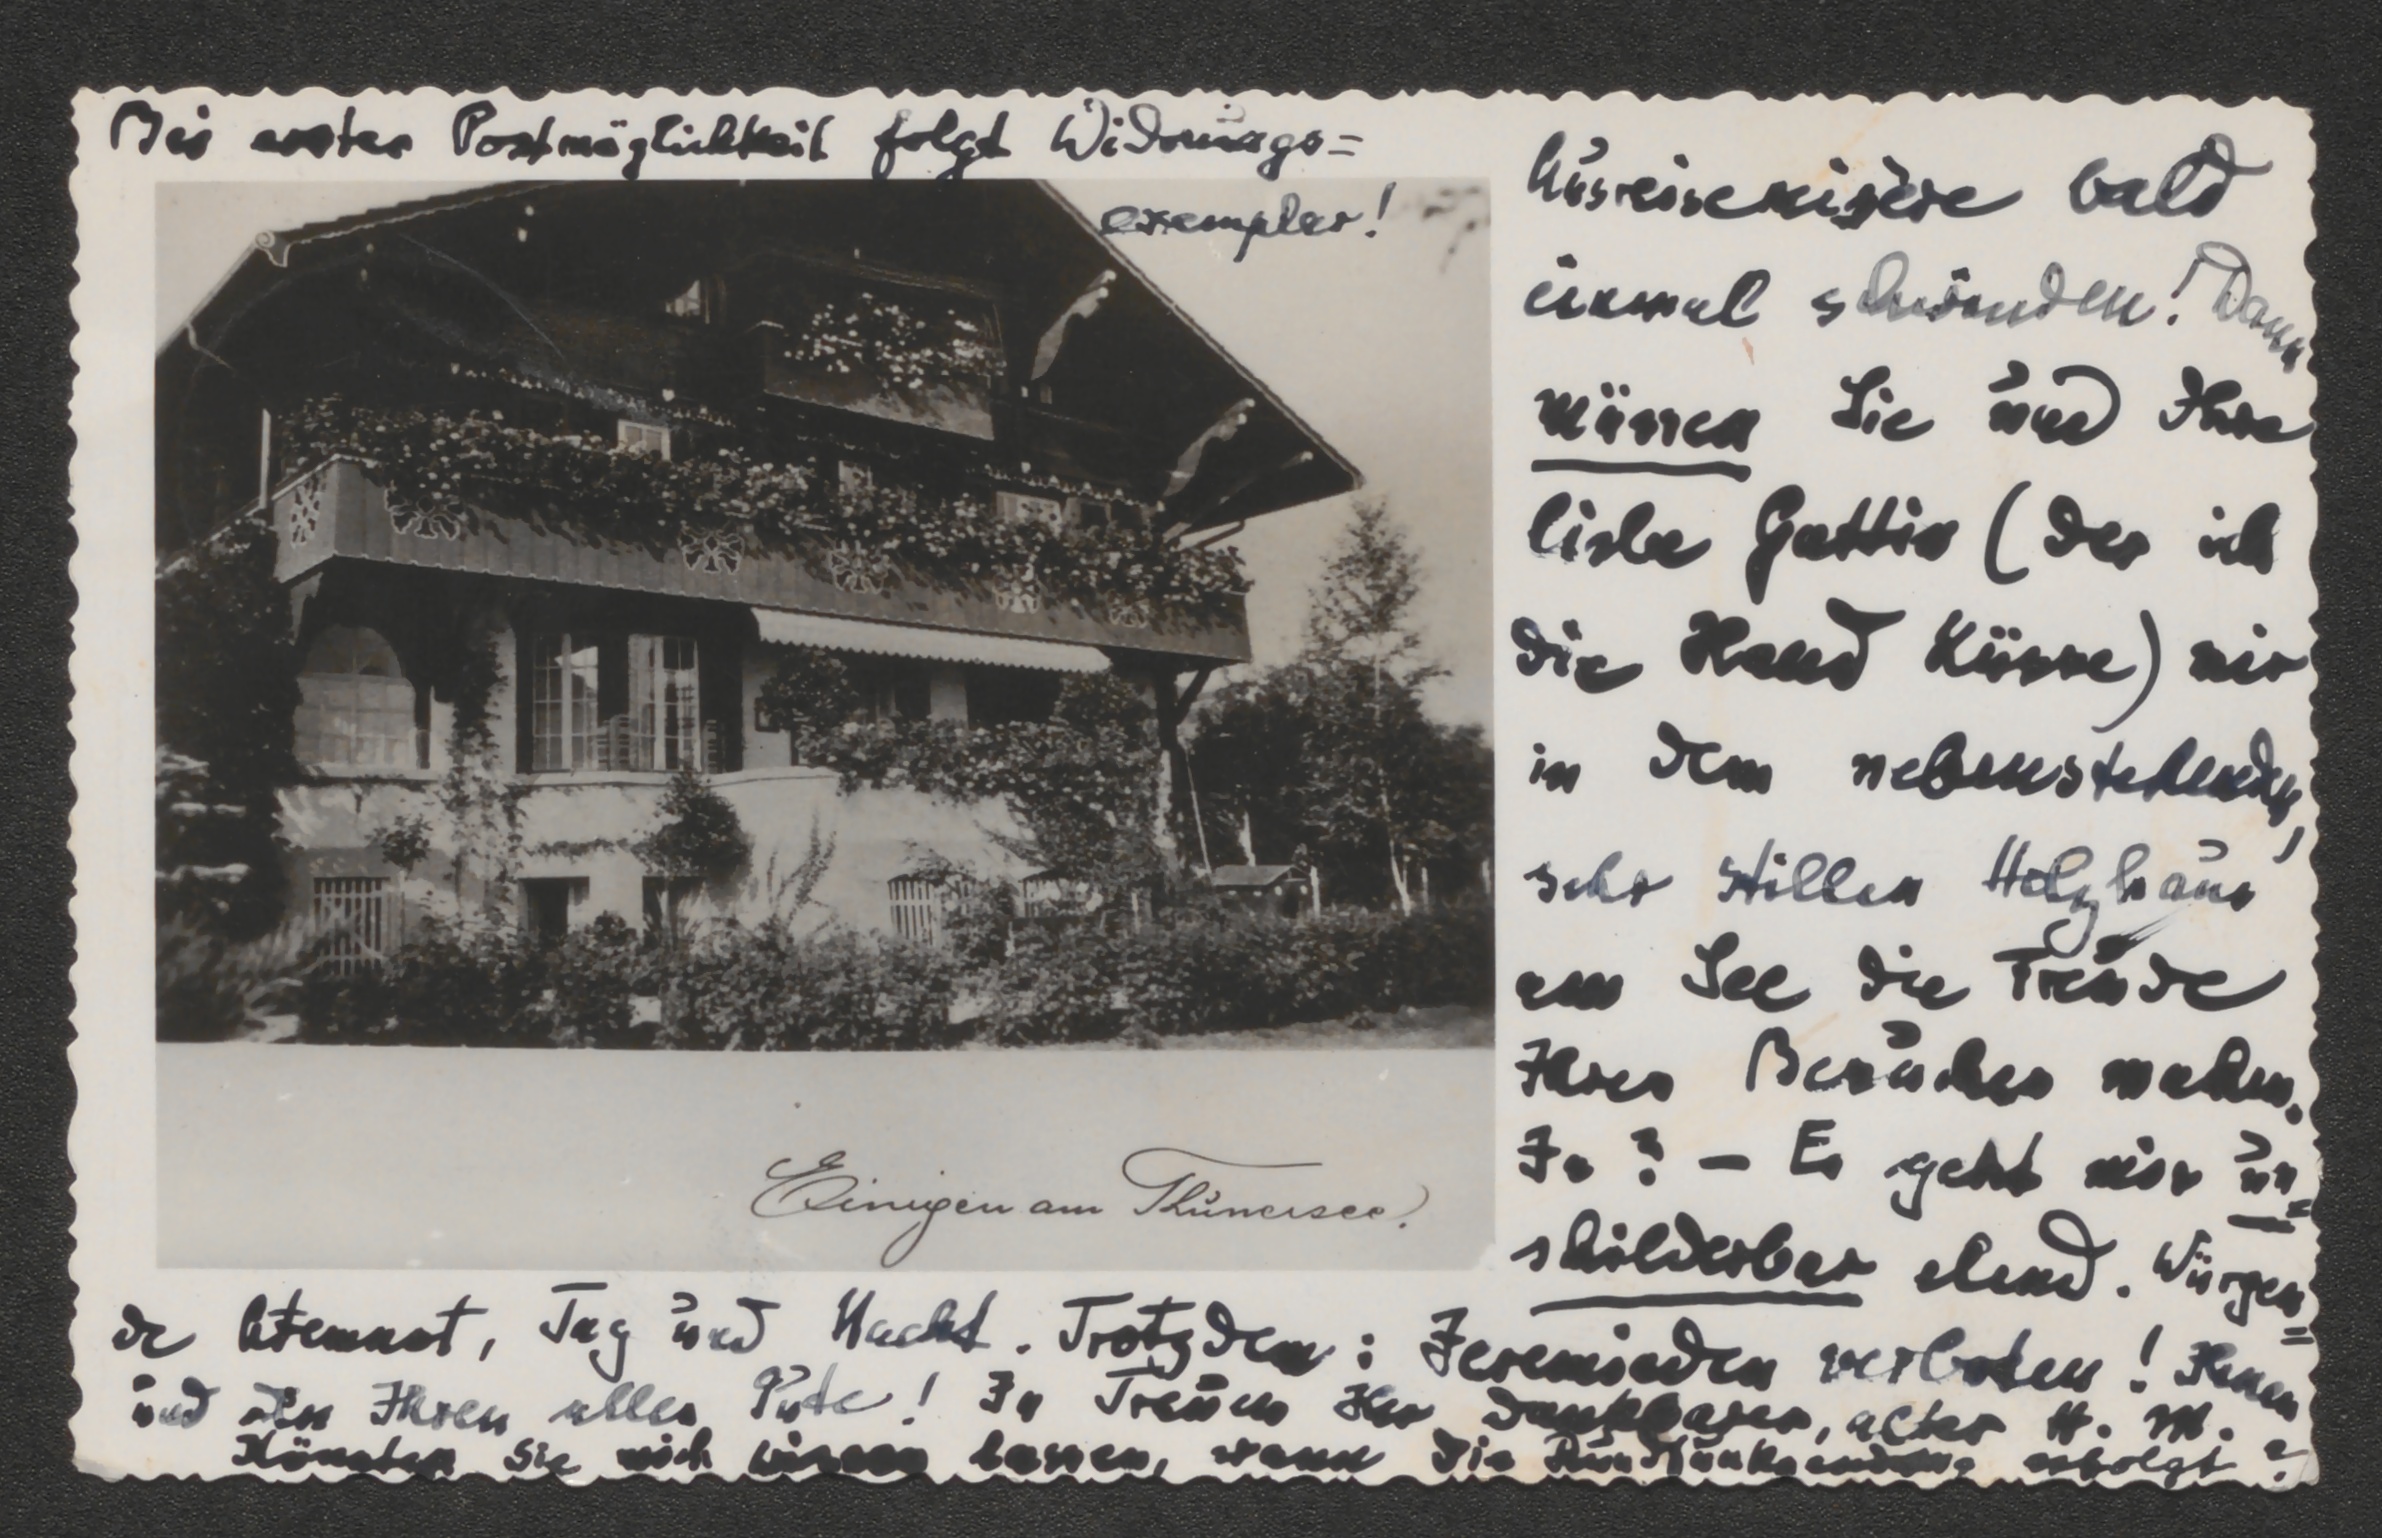 Bei erster Postmöglichkeit folgt Widmungs=
exemplar!
Ausreisemisère bald
einmal schwinden! Dann
müssen Sie und Ihre
liebe Gattin (der ich
die Hand küsse) mir
in dem nebenstehenden,
sehr stillen Holzhaus
am See die Freude
Ihres Besuches machen.
Ja? – Es geht mir un=
schilderbar elend. Würgen=
de Atemnot, Tag und Nacht. Trotzdem: Jeremiaden verboten! Ihnen
und den Ihren alles Gute! In Treuen Ihr dankbarer, alter H. M.
Könnten Sie mich wissen lassen, wann die Rundfunksendung erfolgt?
Einigen am Thunersee.